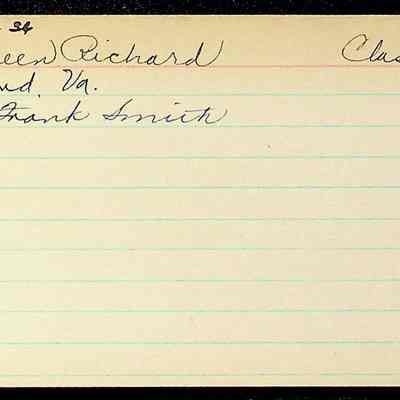 34
een Richard Clas
nd, Va.
Frank Smith